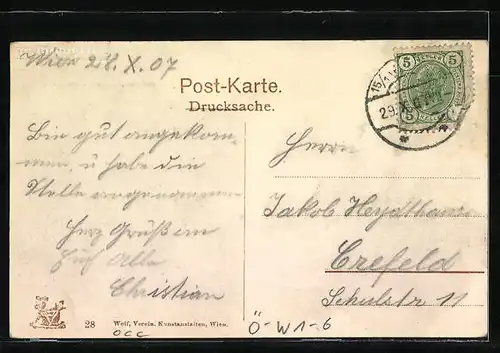 Wien 28.X.07
Post-Karte.
Drucksache.
5 5
29.X.07
Bin gut angekom-
men, u habe die
Stelle angenommen
Herz Gruß an
Euch Alle
Christian
Herrn
Jakob Heydthausen
Crefeld
Schulstr 11
28 Wolf, Verein. Kunstanstalten, Wien.
occ
Ö-W1-6